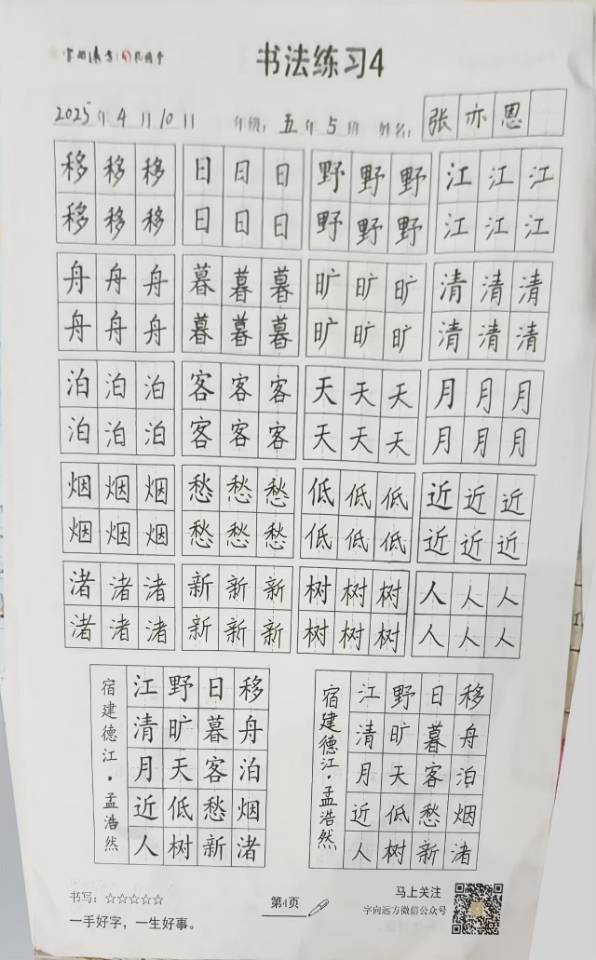 书法练习4
2025年4月10日 年级：五年5班 姓名：张亦恩
移移移 日日日 野野野 江江江
移移移 日日日 野野野 江江江
舟舟舟 暮暮暮 旷旷旷 清清清
舟舟舟 暮暮暮 旷旷旷 清清清
泊泊泊 客客客 天天天 月月月
泊泊泊 客客客 天天天 月月月
烟烟烟 愁愁愁 低低低 近近近
烟烟烟 愁愁愁 低低低 近近近
渚渚渚 新新新 树树树 人人人
渚渚渚 新新新 树树树 人人人
宿建德江·孟浩然
移舟泊烟渚
日暮客愁新
野旷天低树
江清月近人
宿建德江·孟浩然
移舟泊烟渚
日暮客愁新
野旷天低树
江清月近人
书写：☆☆☆☆☆
一手好字，一生好事。
第4页
马上关注
字向远方微信公众号